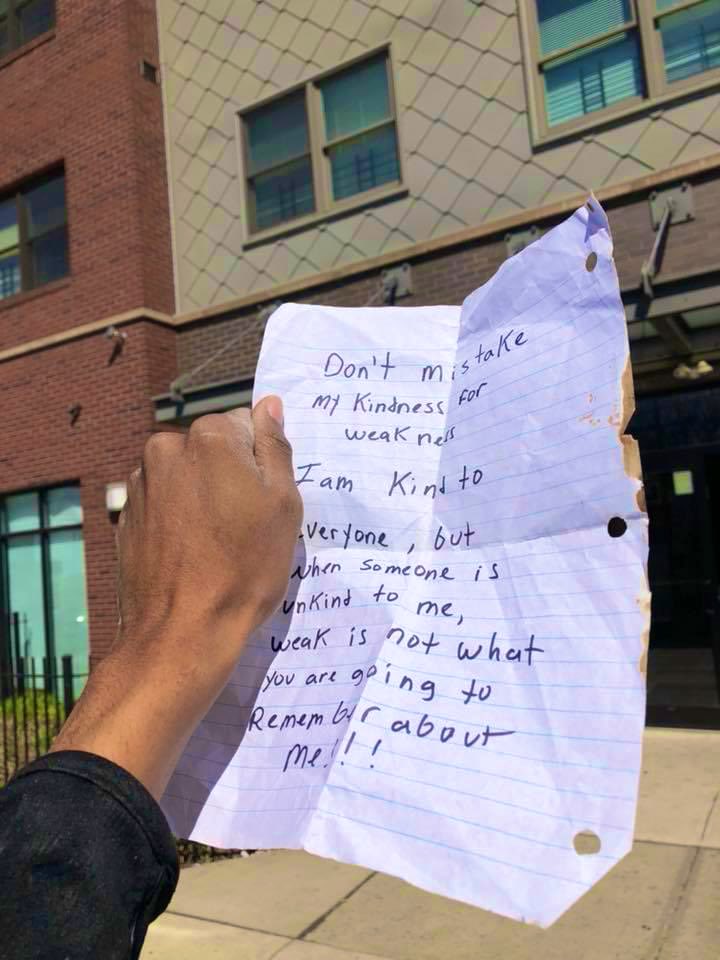 Don't mistake
my Kindness for
weakness
I am Kind to
everyone, but
when someone is
unKind to me,
weak is not what
you are going to
Remember about
Me!!!